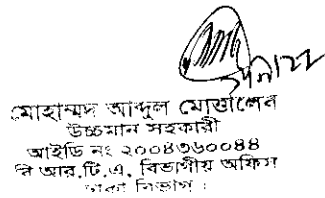 মোহাম্মদ আব্দুল মোত্তালেব
উচ্চমান সহকারী
আইডি নং ২০০৪৩৬০০৪৪
বি আর.টি.এ, বিভাগীয় অফিস
ঢাকা বিভাগ ।